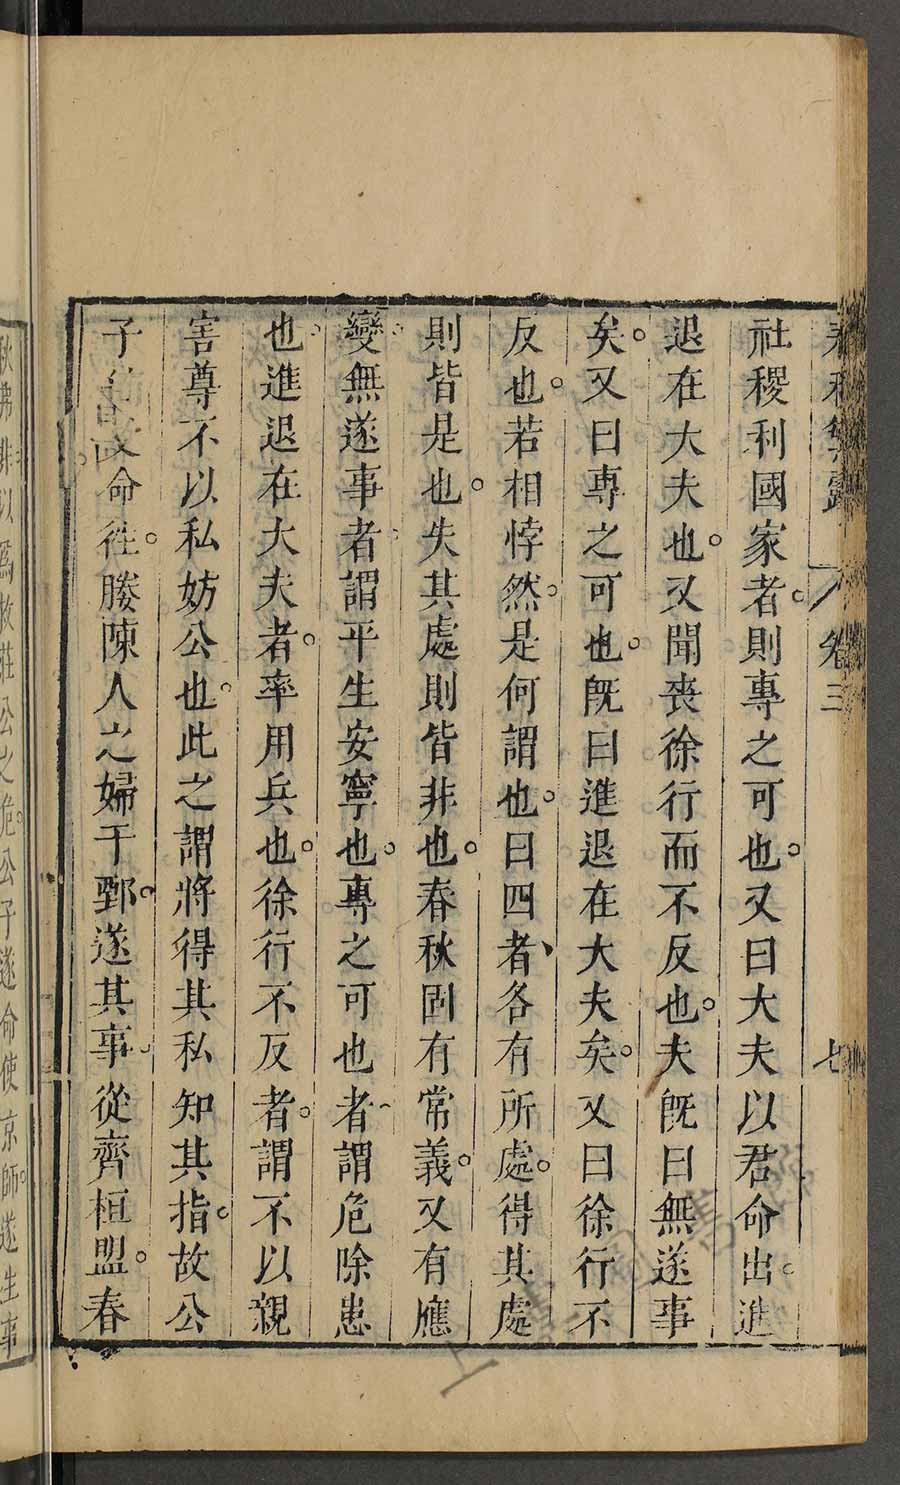 卷三
七
社稷利國家者則專之可也又曰大夫以君命出進
退在大夫也又聞喪徐行而不反也夫旣曰無遂事
矣又曰專之可也旣曰進退在大夫矣又曰徐行不
反也若相悖然是何謂也曰四者各有所處得其處
則皆是也失其處則皆非也春秋固有常義又有應
變無遂事者謂平生安寧也專之可也者謂危除患
也進退在大夫者率用兵也徐行不反者謂不以親
害尊不以私妨公也此之謂將得其私知其指故公
子命徃媵陳人之婦于鄄遂其事從齊桓盟春
秋弗非以爲救莊公之危公子遂命使京師遂生事